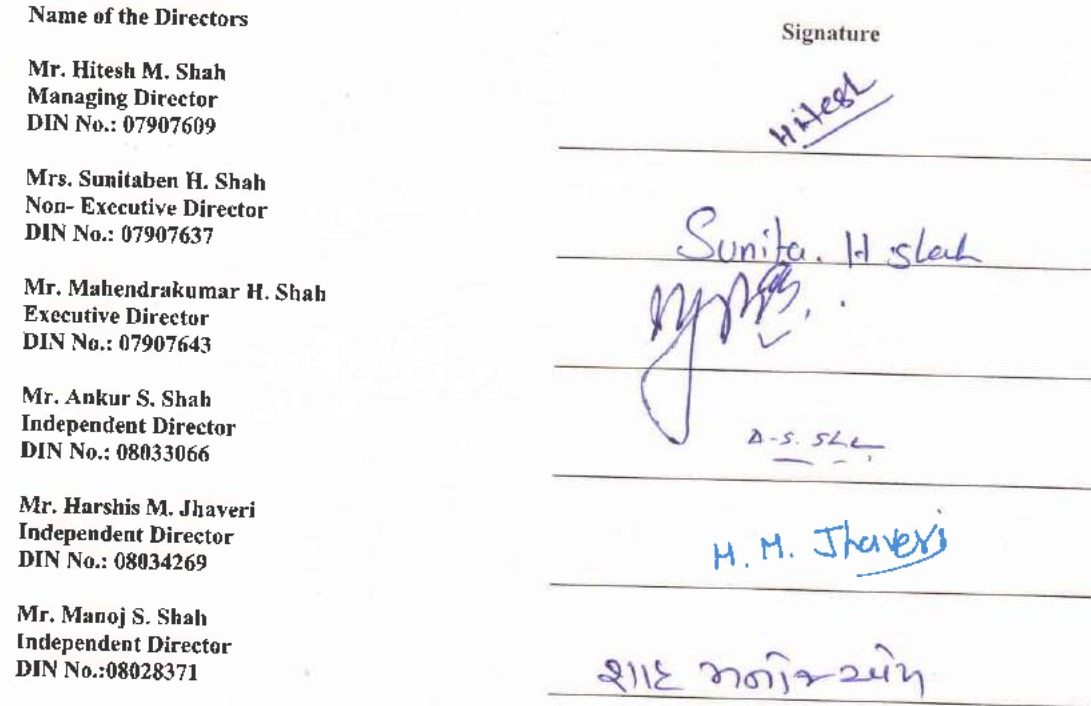 Name of the Directors
Signature
Mr. Hitesh M. Shah
Managing Director
DIN No.: 07907609
Hitesh
Mrs. Sunitaben H. Shah
Non- Executive Director
DIN No.: 07907637
Sunita. H shah
Mr. Mahendrakumar H. Shah
Executive Director
DIN No.: 07907643
Mr. Ankur S. Shah
Independent Director
DIN No.: 08033066
A-S. Sha
Mr. Harshis M. Jhaveri
Independent Director
DIN No.: 08034269
H. M. Jhaveri
Mr. Manoj S. Shah
Independent Director
DIN No.:08028371
શાહ મનોજ